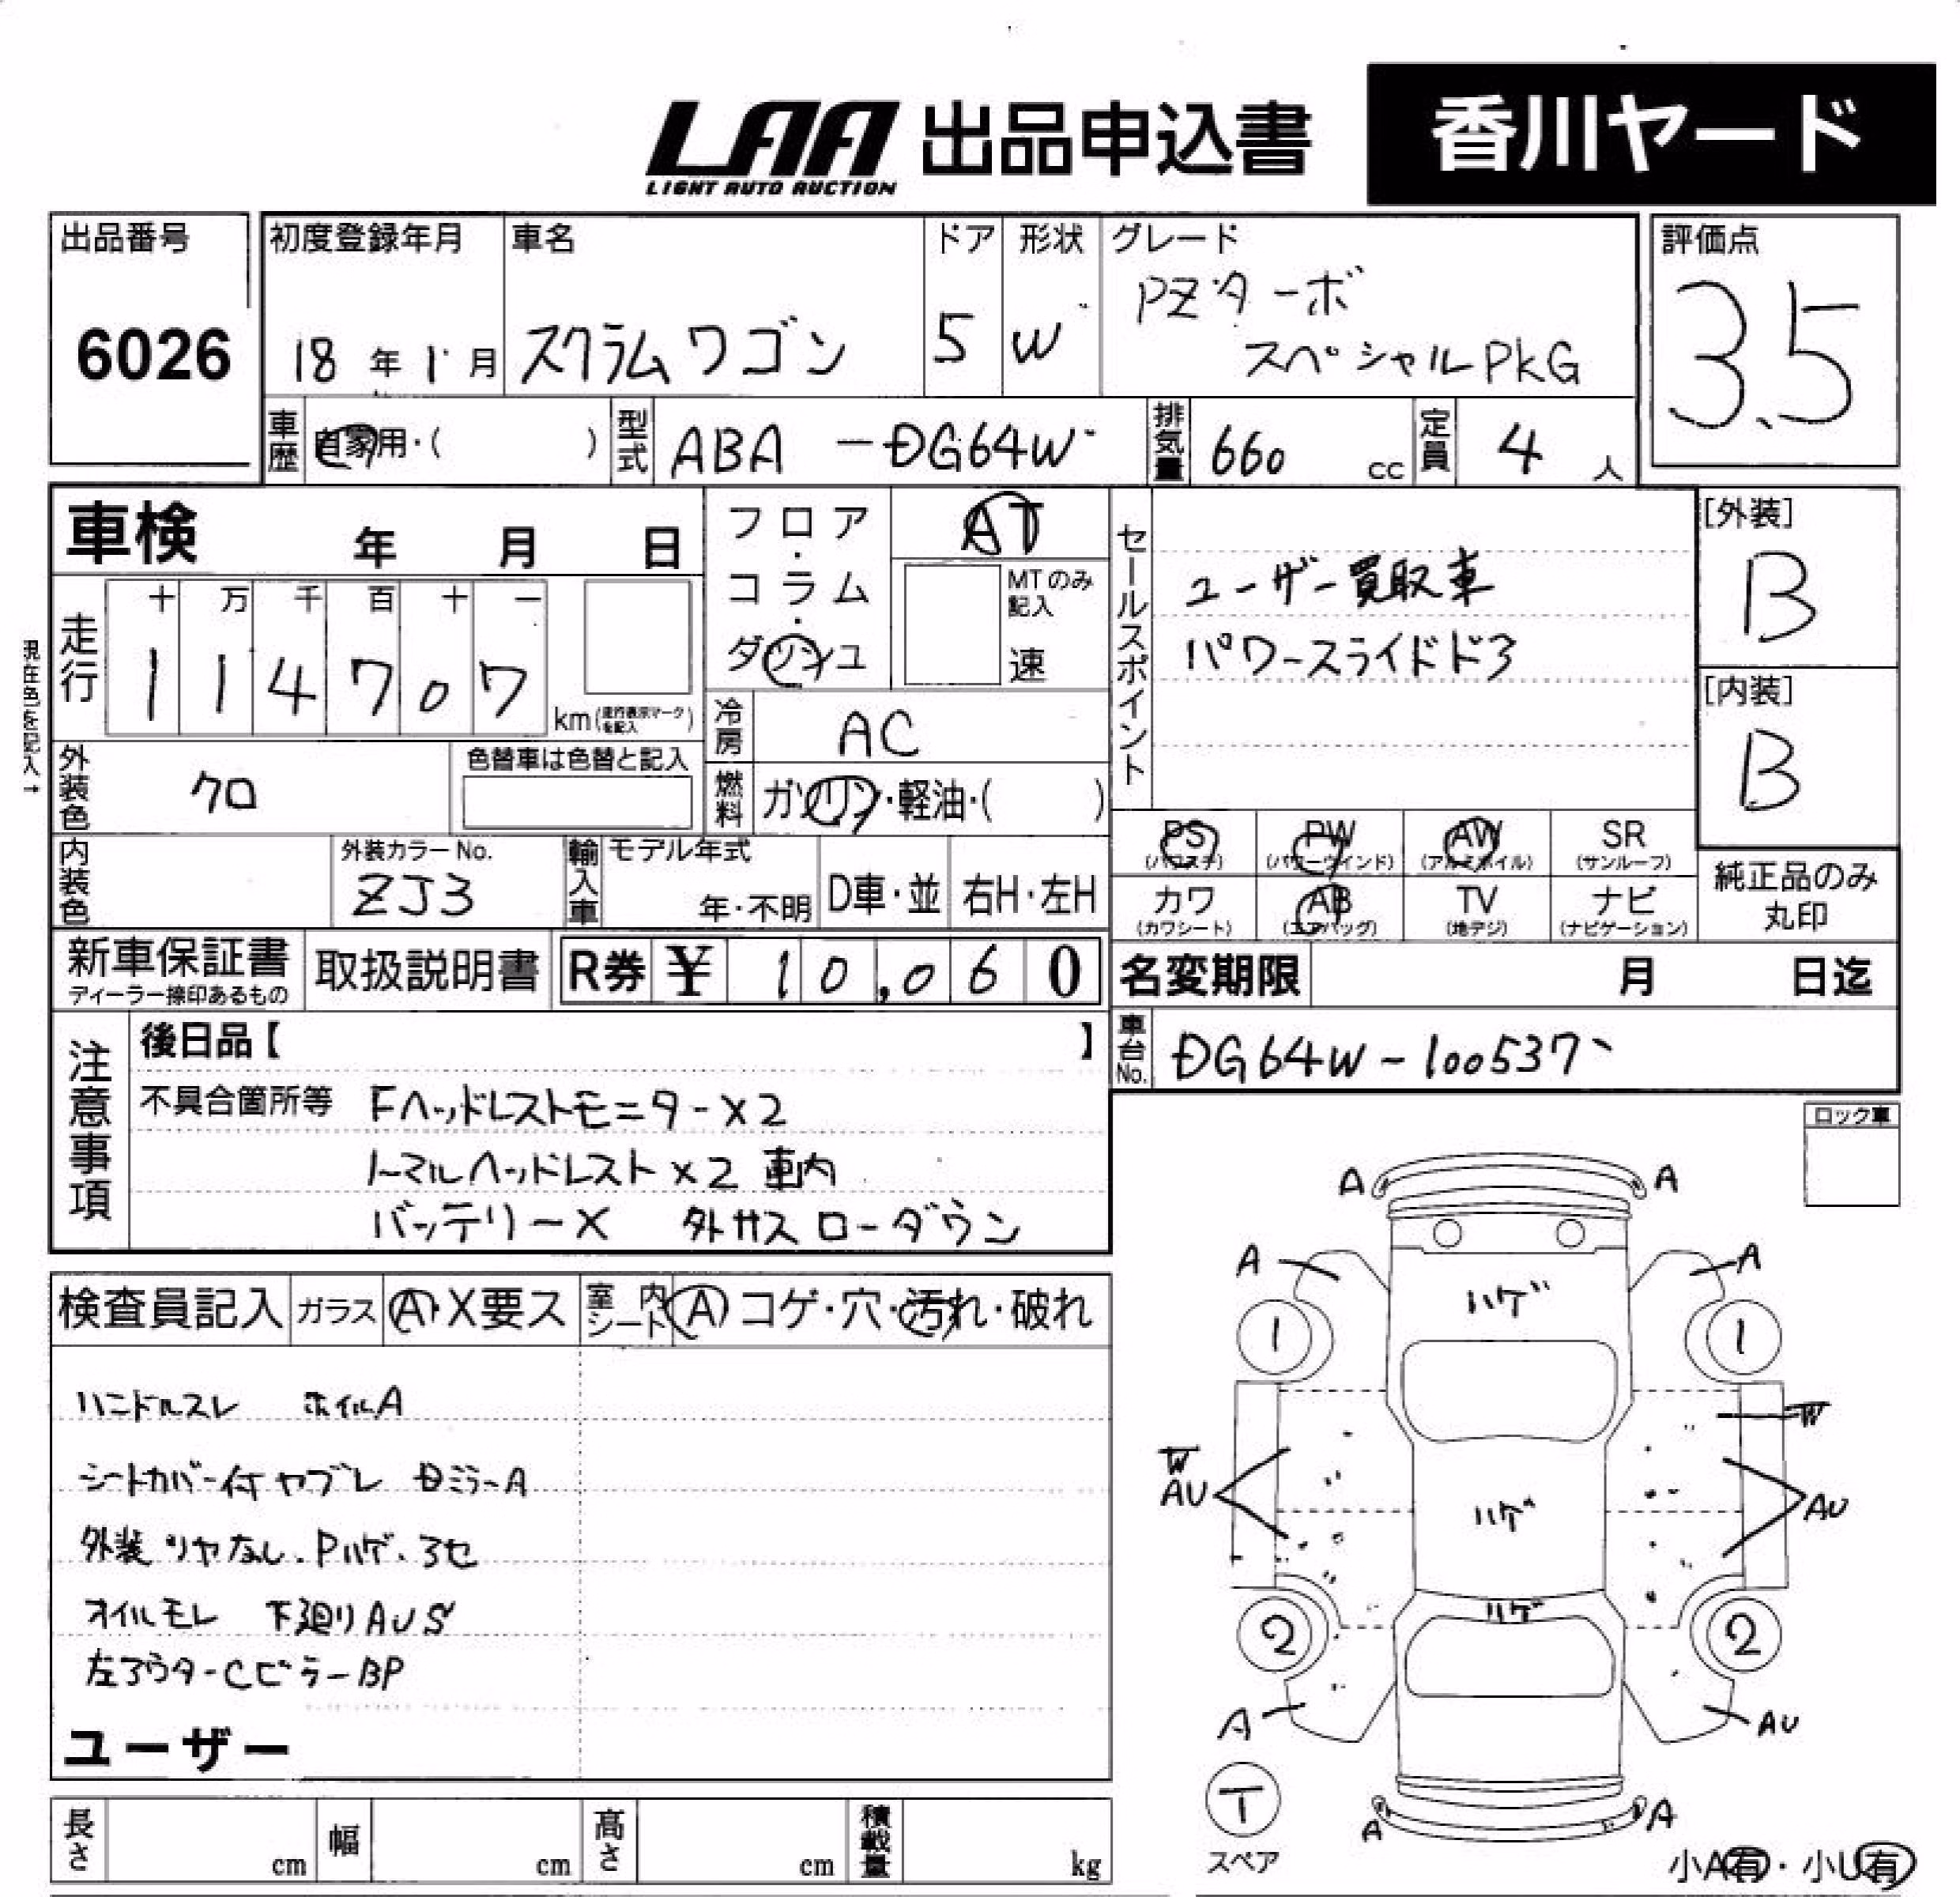 LAA 出品申込書 香川ヤード
LIGHT AUTO AUCTION
出品番号 初度登録年月 車名 ドア 形状 グレード 評価点
6026 18年1月 スクラムワゴン 5 W PZターボ
スペシャルPKG 3.5
車歴 自家用・( ) 型式 ABA-DG64W 排気量 660cc 定員 4人
車検 年 月 日 フロア・コラム・ダッシュ AT
MTのみ記入 速
走行 十 万 千 百 十 一
1 1 4 7 0 7 km(走行表示マークを記入)
現在色を記入→
冷房 AC
外装色 クロ 色替車は色替と記入 燃料 ガソリン・軽油・( )
内装色 外装カラーNo. ZJ3 輸入車 モデル年式 年・不明 D車・並 右H・左H
セールスポイント
ユーザー買取車
パワースライドド3
[外装] B
[内装] B
PS(パワステ) PW(パワーウインド) AW(アルミホイル) SR(サンルーフ)
カワ(カワシート) AB(エアバッグ) TV(地デジ) ナビ(ナビゲーション)
純正品のみ丸印
新車保証書 ディーラー捺印あるもの 取扱説明書 R券 ¥ 10,060 名変期限 月 日迄
車台No. DG64W-100537
注意事項 後日品【 】
不具合箇所等 Fヘッドレストモニター×2
ノーマルヘッドレスト×2 車内
バッテリー× 外ガス ローダウン
ロック車
検査員記入 ガラス A・X要ス 室内シート A コゲ・穴・汚れ・破れ
ハンドルスレ ホイルA
シートカバー付ヤブレ Dミラー A
外装ツヤなし.Pハゲ.
オイルモレ 下廻りAUS
CピラーBP
ユーザー
長さ cm 幅 cm 高さ cm 積載量 kg
A A
A A
ハゲ
1 1
W W
AU AU
ハゲ
ハゲ
2 2
A AU
T
スペア
A A
小A有・小U有